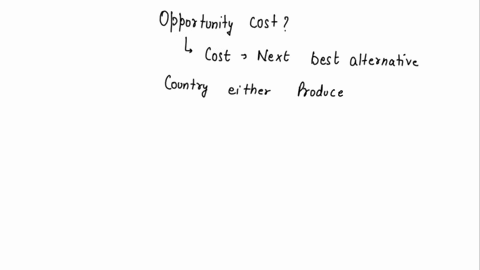 Opportunity cost?
↳ Cost → Next best alternative
Country either Produce